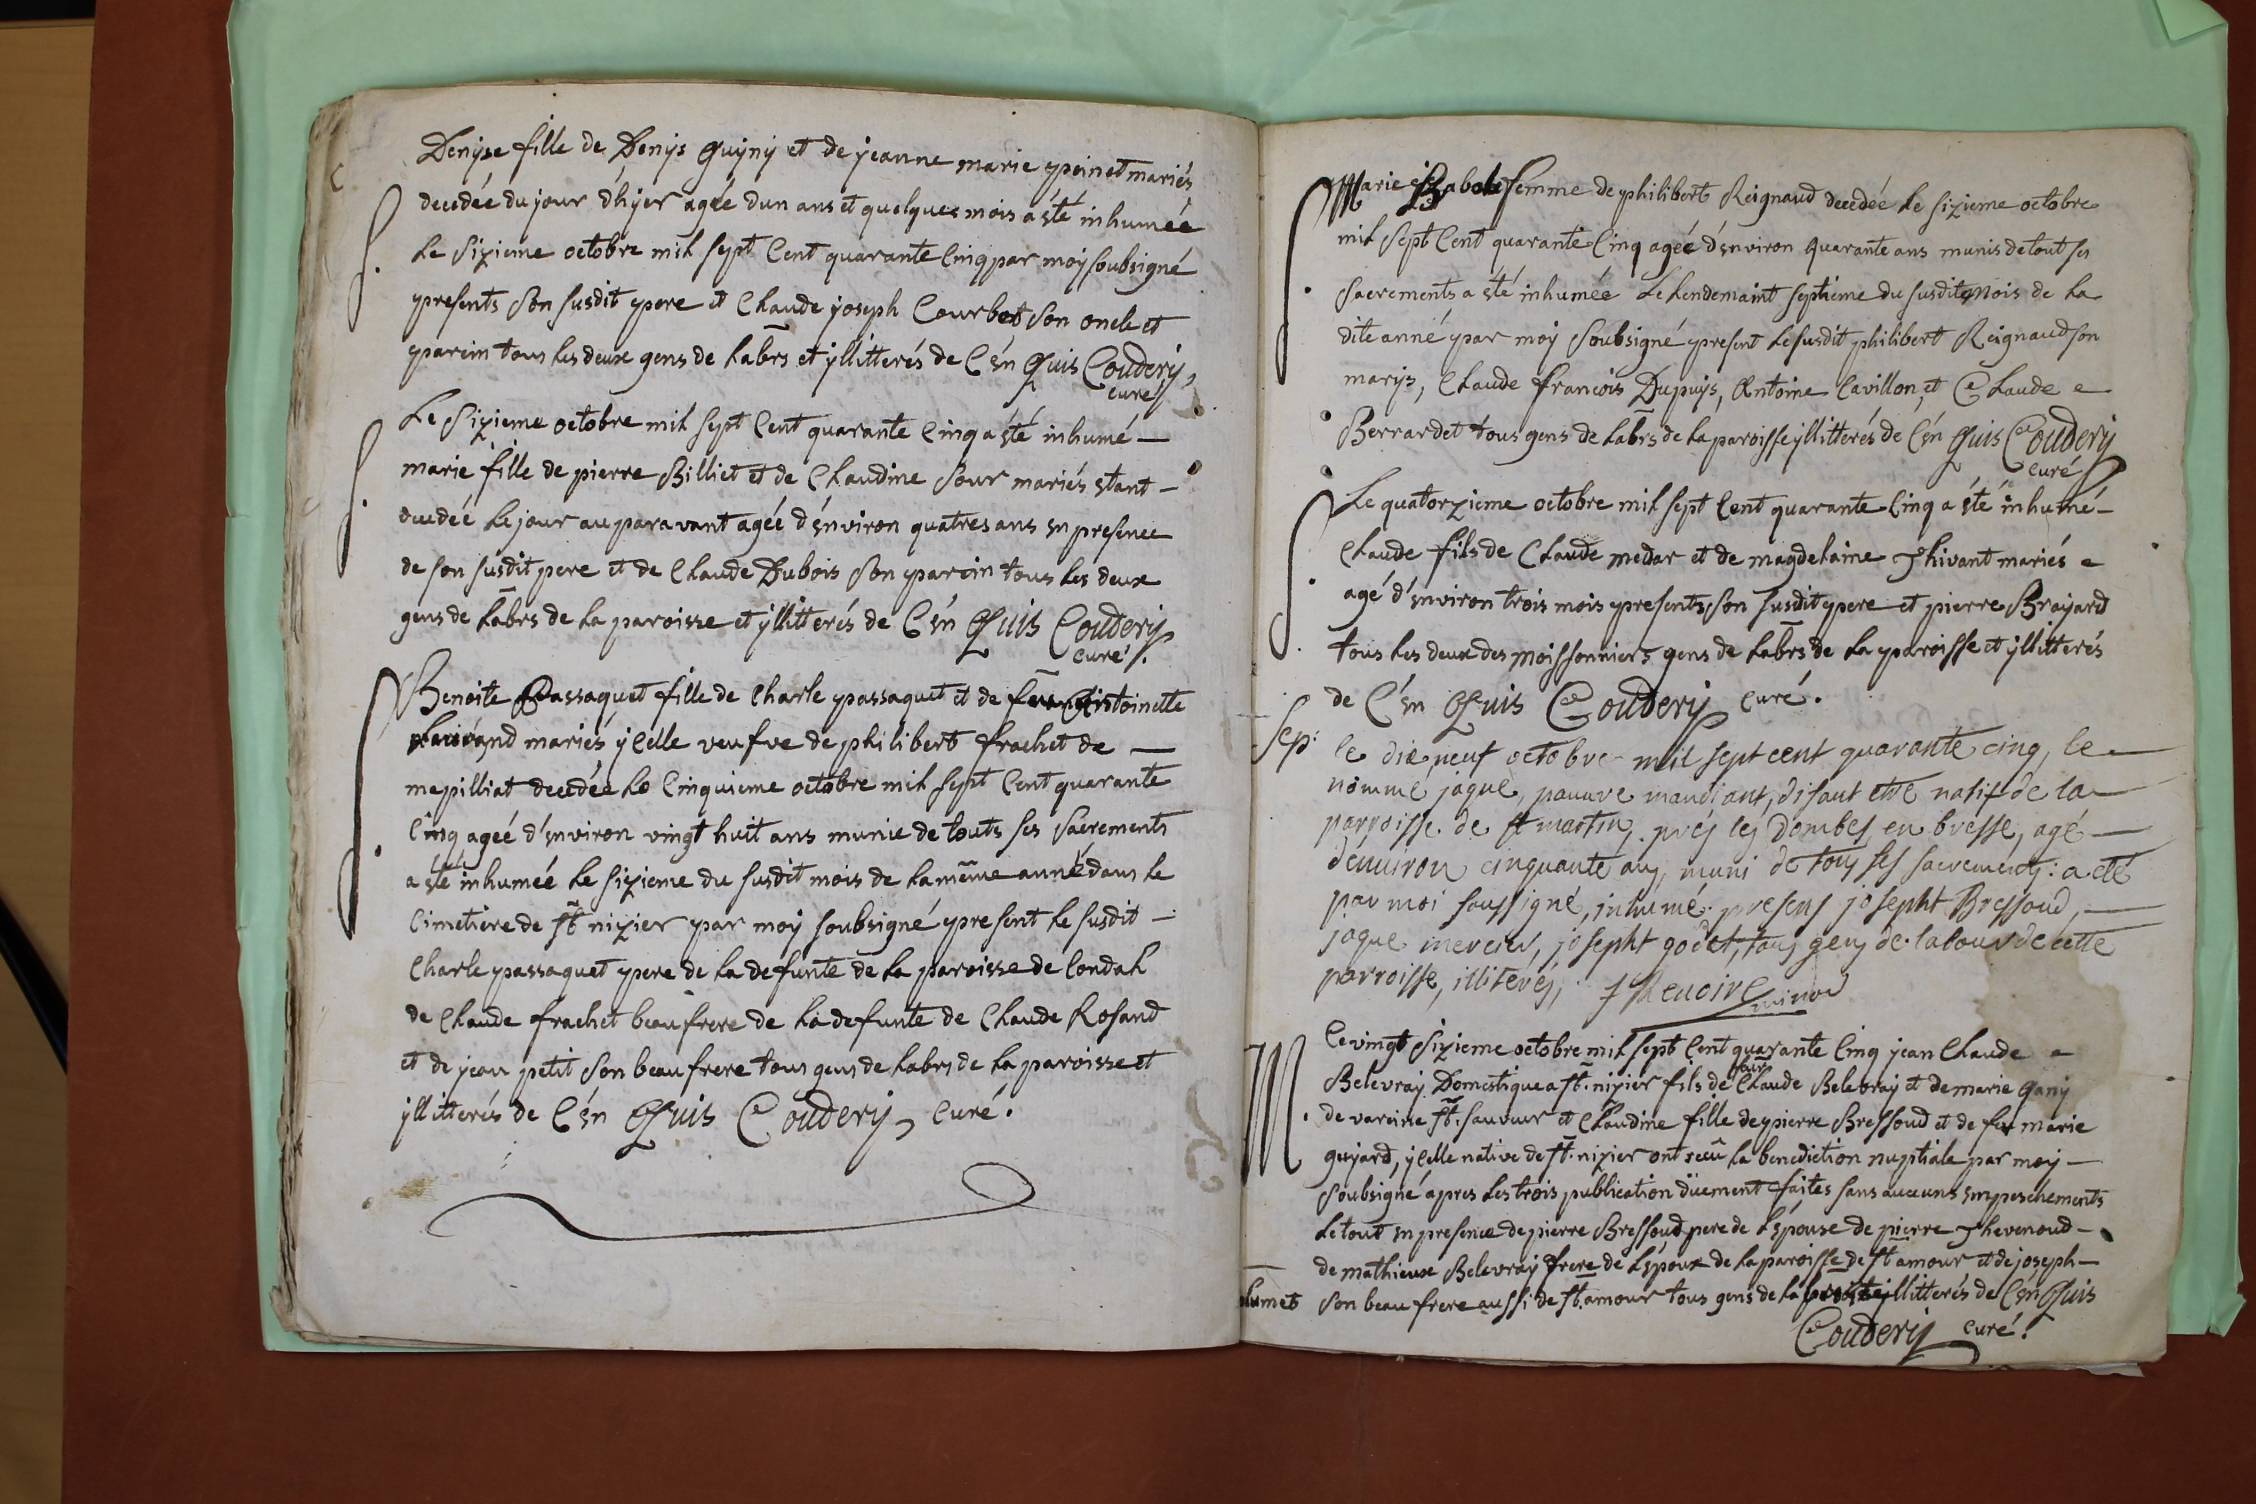 Denyse fille de Denys guyny et de jeanne marie poinet mariés
decedée du jour d'hÿer agée dun ans et quelques mois a été inhumée
le sizieme octobre mil sept cent quarante cinq par moy soubsigné
presents son susdit pere et claude joseph Courbet son oncle et
parin tous les deux gens de labrs et yllitterés de c'en quis Coudery,
curé
S.
Le sizieme octobre mil sept cent quarante cinq a été inhumé —
marie fille de pierre Billiet et de claudine sour mariés etant —
decedée le jour au paravant agée d'environ quatres ans en presence
de son susdit pere et de claude Dubois son parin tous les deux
gens de labrs de la paroisse et yllitterés de c'en quis Coudery
curé.
S.
Benoite Passaquet fille de charle passaquet et de Antoinette
mariés ycelle veufve de philibert frachet de —
mepilliat decedée le cinquieme octobre mil sept cent quarante
cinq ageé d'environ vingt huit ans munie de touts ses sacrements
a été inhumeé le sizieme du susdit mois de la même anné dans le
cimetiere de st nizier par moy soubsigné present le susdit —
charle passaquet pere de la defunte de la paroisse de condal
de claude frachet beau frere de la defunte de claude Rosand
et de jean petit son beau frere tous gens de labrs de la paroisse et
yllitterés de c'en quis Coudery, curé.
S.
Marie femme de philibert Reignaud decedée le sizieme octobre
mil sept cent quarante cinq ageé d'environ quarante ans munis de tout ses
sacrements a été inhumée le lendemaint septieme du susdit mois de la
dite anné par moy soubsigné present le susdit philibert Reignaud son
marys, claude francois Dupuys, Antoine Cavillon, et Claude
Berrardet tous gens de labrs de la paroisse yllitterés de c'en quis Coudery
curé
S.
Le quatorzieme octobre mil sept cent quarante cinq a été inhumé —
claude fils de claude medar et de magdelaine Thivant mariés
agé d'environ trois mois presents son susdit pere et pierre Brayard
tous les deux des moissonniers gens de labrs de la paroisse et yllitterés
de c'en quis Coudery curé.
Sep:
le dix neuf octobre mil sept cent quarante cinq, le —
nommé jaque, pauvre mandiant, disant etre natif de la —
parroisse de st martin, prés les Dombes en bresse, agé —
d'environ cinquante ans, muni de tous ses sacrements: a eté
par moi soussigné, inhumé: presens josepht Bressoud, —
jaque mercier, josepht godet, tous gens de labour de cette
parroisse, illiterés, f Renoire minor
M.
Le vingt sizieme octobre mil sept cent quarante cinq jean claude
Belevray Domestique a st. nizier fils de claude Belevray et de marie gany
de vareine st. sauveur et claudine fille de pierre Bressoud et de feu marie
guyard, ycelle native de st. nizier ont reçû la benediction nuptiale par moy —
soubsigné apres les trois publication düement faites sans aucuns empeschements
le tout en presence de pierre Bressoud pere de l'epouse de pierre Thevenoud —
de mathieux Belevray frere de l'epoux de la paroisse de st amour et de joseph —
lumet son beau frere aussi de st. amour tous gens de la yllitterés de c'en quis
Coudery curé.